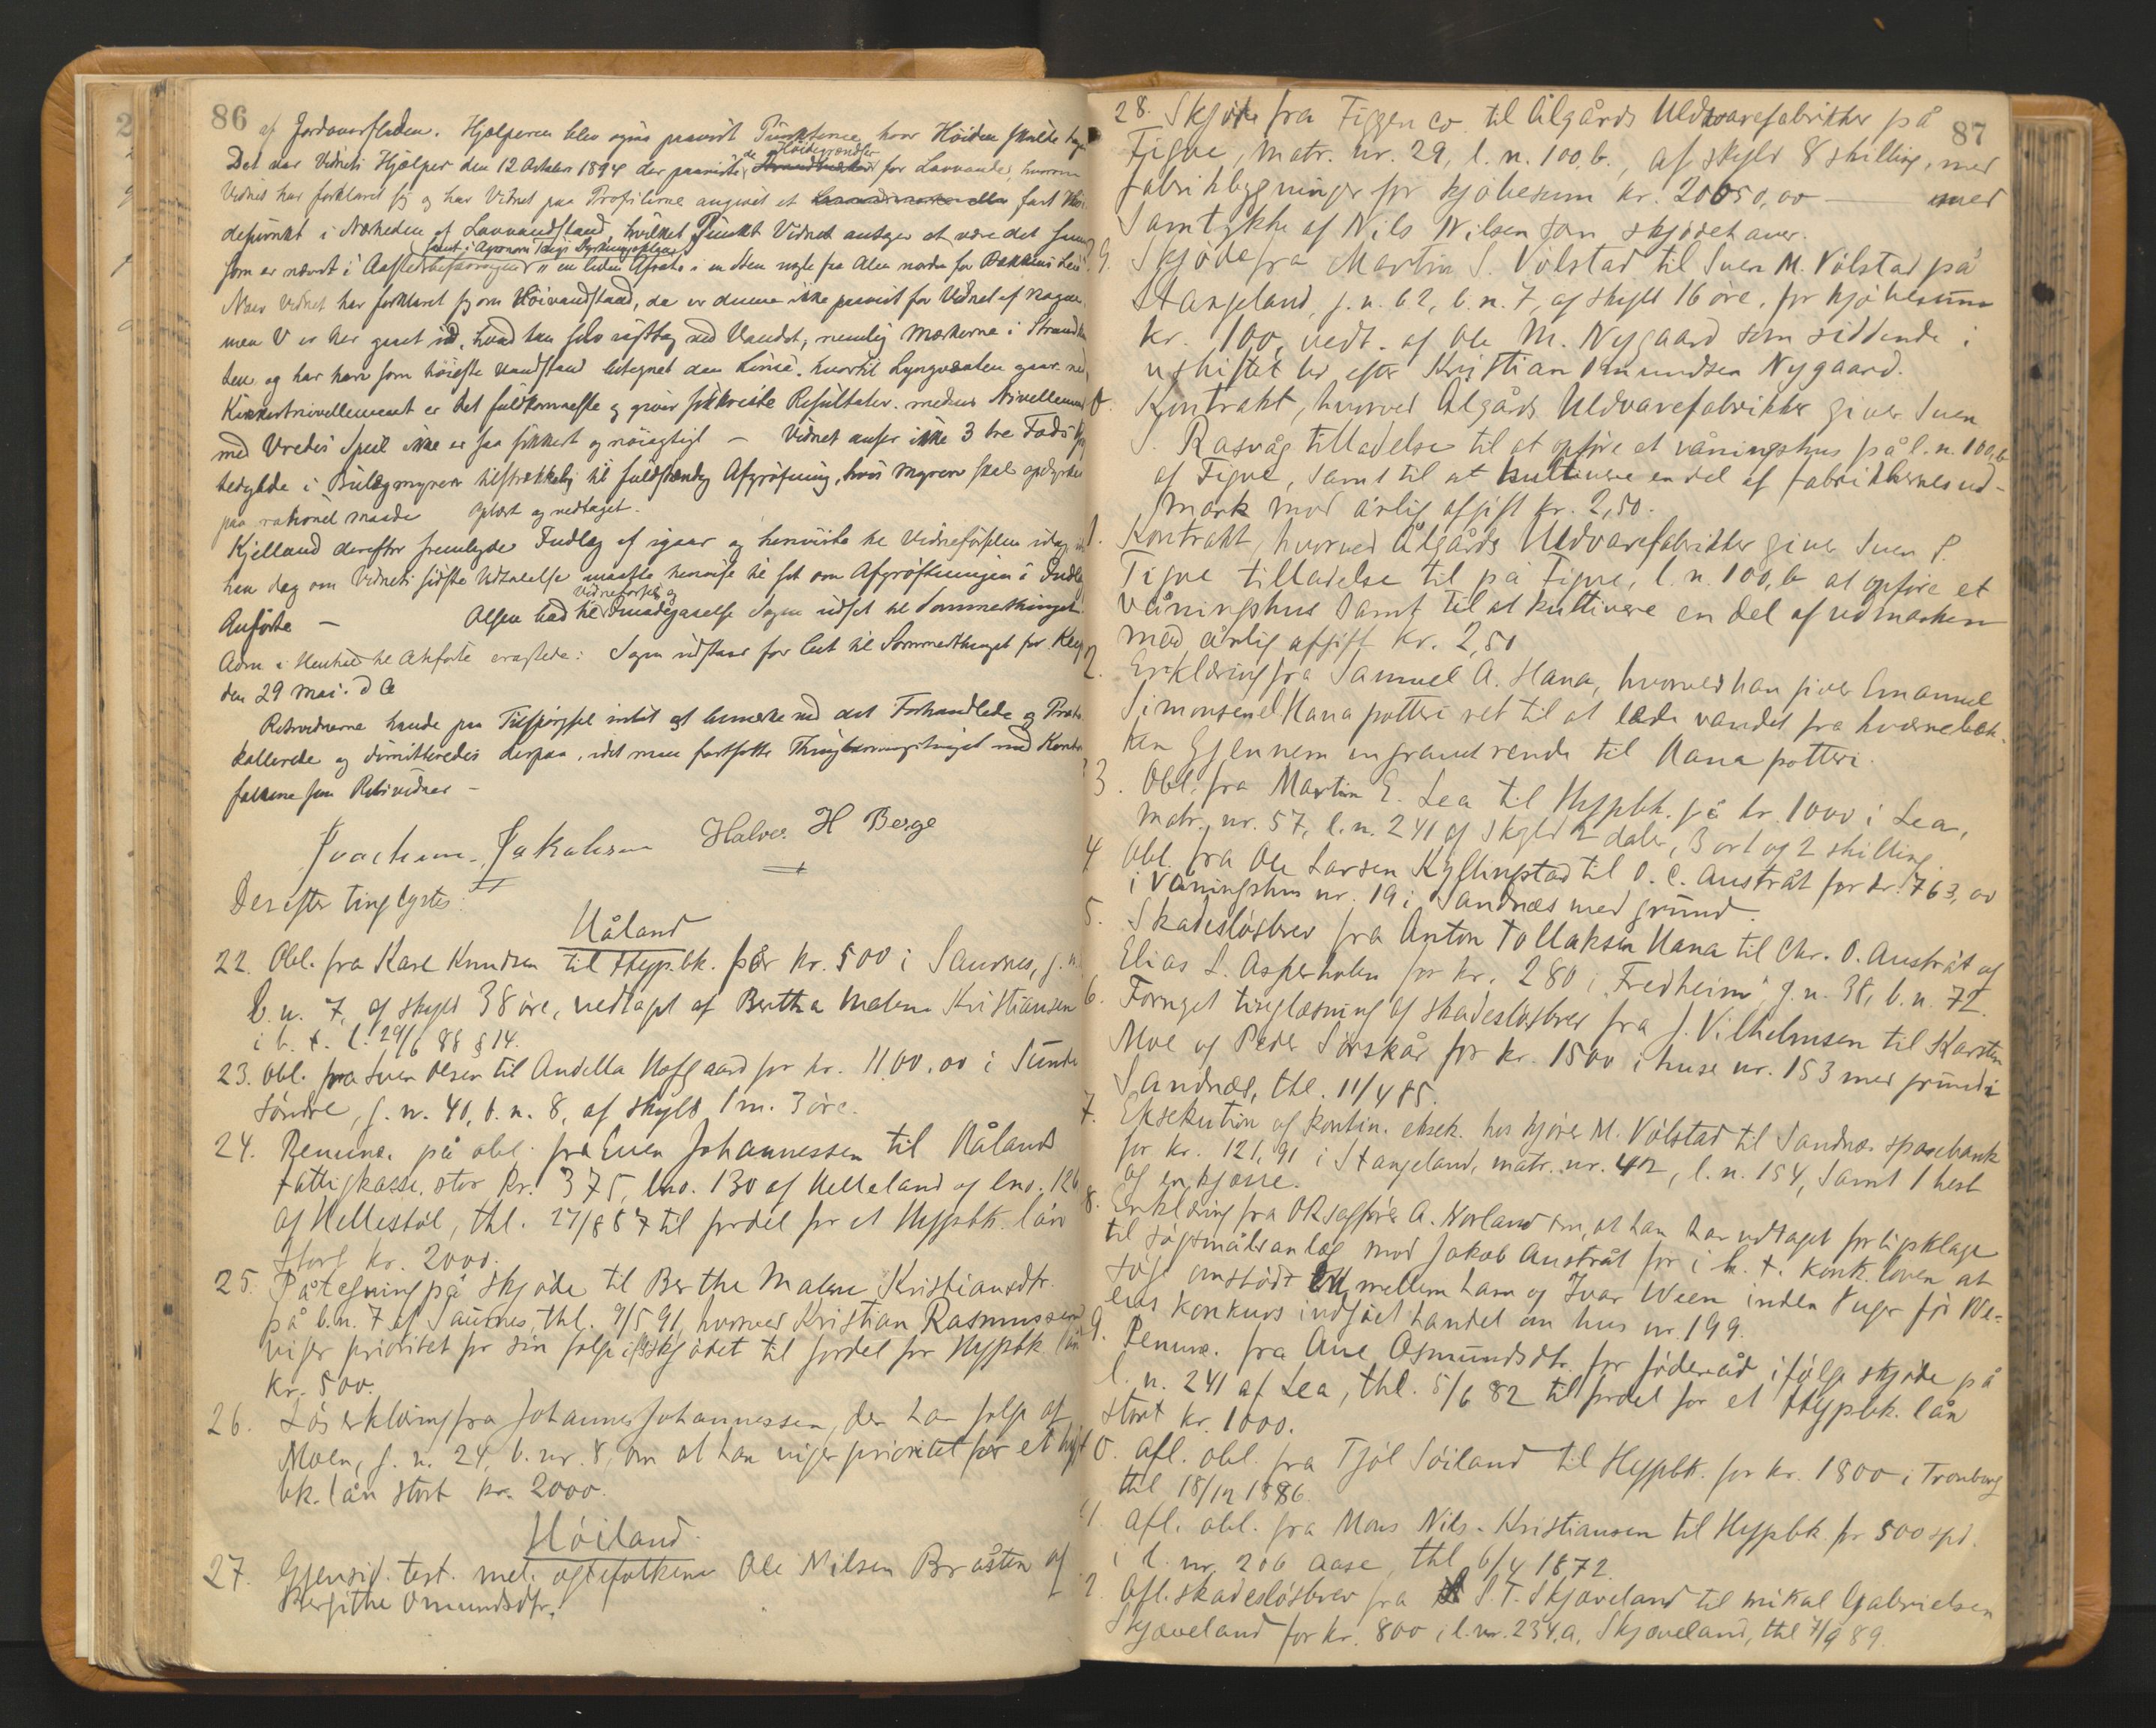 86
af Jordoverfladen. Hjælperen blev ogsaa paavist Punkterne, hvor Høiden skulde tages
Det var Vidnets Hjælper den 12 Oktober 1894 der paaviste de Høidegrændser for Lavvande, hvorom
Vidnet har forklaret sig og har Vidnet paa Profilerne angivet et fast Høi-
depunkt i Nærheden af Lavvandstand, hvilket Punkt Vidnet antager at være det samme
som er nævnt i
Naar Vidnet har forklaret sig om Høivandstand, da er denne ikke paavist for Vidnet af nogen,
men V er her gaaet ud, hvad han selv iagttog ved Vandet, nemlig Mærkerne i Strandkan
ten og har han som høieste vandstand betegnet den Linie, hvortil Lyngvæxten gaar ned,
Kikkertnivellement er det fuldkomneste og giver sikkreste Resultater, medens Nivellement
med Vredes Speil ikke er saa sikkert og nøiagtigt — Vidnet anser ikke 3 tre Fods
dybde i myren tilstrækkelig til fuldstændig Afgrøftning, hvis Myren skal opdyrkes
paa rationel Maade Oplæst og vedtaget.
Kjelland derefter fremlagde Indlæg af igaar og henviste til Vidneførslen idag
han dog om Vidnets sidste Udtalelse maatte henvise til det om Afgrøftningen i Indlæg
Anførte — Olsen bad til Vidneførsel og Imødegaaelse Sagen udsat til Sommerthinget.
Adm i Henhold til Anførte eragtede: Sagen udstaar for Lut til Sommerthinget for Klep
den 29 Mai. d A
Retsvidnerne havde paa Tilspørgsel intet at bemærke ved det Forhandlede og Proto
kollerede og dimitteredes derpaa, idet man fortsatte Thinglæsningsthinget med Kontor
folkene som Retsvidner —
Joachim Jakobsen Halvor H Berge
Derefter tinglystes:
Håland
22. Obl. fra Karl Knudsen til Hyp.bk. for kr. 500 i Saurnes, g. n.
b. n. 7, af skyld 38 øre, vedtaget af Bertha Malene Kristiansen
i h. t. l. 29/6 88 § 14.
23. Obl. fra Sven Olsen til Andella Hofgaard for kr. 1100,00 i Sunde
søndre, g. n. 40, b. n. 8, af skyld 1 m. 3 øre.
24. Renunc. på obl. fra Even Johannessen til Hålands
fattigkasse, stor kr. 375, lno. 130 af Helleland og lno. 126
af Hellestøl, thl. 27/8 87 til fordel for et Hyppbk. lån
stort kr. 2000.
25. Påtegning på skjøde til Berthe Malene Kristiansdtr.
på b.n. 7 af Saurnes, thl. 9/5 91, hvorved Kristian Rasmussen
viger prioritet for sin følge i skjødet til fordel for Hyppbk lån
kr. 500.
26. Løserklæring fra Johannes Johannessen, der har følge af
Moen, g. n. 24, b. nr. 8, om at han viger prioritet for et hyp
bk. lån stort kr. 2000.
Høiland.
27. Gjensid. test. mel. ægtefolkene Ole Nilsen Bråsten og
Bergithe Omundsdtr.
87
28. Skjøde fra Figgen co til Ålgårds Uldvarefabrikker på
Figve, matr. nr. 29, l. n. 100, b., af skyld 8 skilling, med
fabrikbygninger for kjøbesum kr. 20050,00 — med
Samtykke af Nils Nilsen som skjødehaver.
9. Skjøde fra Martin S. Vølstad til Sven M. Vølstad på
Stangeland, g. n. 62, b. n. 7, af skyld 16 øre, for kjøbesum
kr. 100, vedt. af Ole M. Nygaard som siddende i
uskiftet bo efter Kristian Omundsen Nygaard.
0. Kontrakt, hvorved Ålgårds Uldvarefabrikker giver Sven
S. Rasvåg tilladelse til at opføre et våningshus på l. n. 100, b
af Figve, samt til at kultivere en del af fabrikkernes ud-
mark mod årlig afgift kr. 2,50.
1. Kontrakt, hvorved Ålgårds Uldvarefabrikker giver Sven P.
Figve tilladelse til på Figve, l. n. 100, b at opføre et
våningshus samt til at kultivere en del af udmarken
mod årlig afgift kr. 2,50
2. Erklæring fra Samuel A. Hana, hvorved han giver Emanuel
Simonsen Hana potteri ret til at lede vandet fra kværnebæk-
ken gjennem en gravet rende til Hana potteri.
3. Obl. fra Martin E. Lea til Hyppbk. på kr. 1000 i Lea,
matr. nr. 57, l. n. 241 af skyld 2 daler, 3 ort og 2 skilling.
4 Obl. fra Ole Larsen Kyllingstad til O. C. Austråt for kr. 763,00
i Våningshus nr. 19 i Sandnæs med grund.
5. Skadesløsbrev fra Anton Tollaksen Hana til Chr. O. Austråt og
Elias L. Asperholen for kr. 280 i "Fredheim", g. n. 38, b. n. 72.
6. Fornyet tinglæsning af skadesløsbrev fra J. Vilhelmsen til Karsten
Moe og Peder Sørskår for kr. 1500 i huse nr. 153 med grund i
Sandnæs, thl. 11/4 85.
7. Eksekution og kontin. eksek. hos kjører M. Vølstad til Sandnæs sparebank
for kr. 121,91 i Stangeland, matr. nr. 42, l. n. 154, samt 1 hest
og en kjærre.
8. Erklæring fra ORsagfører A. Norland om, at han har udtaget forligsklage
til søgsmålsanlæg mod Jakob Austråt for i h. t. konk. loven at
søge omstødt en mellem ham og Ivar Ween inden 8 uger før We-
ens konkurs indgået handel om hus nr. 199.
9. Renunc. fra Ane Asmundsdtr. for føderåd ifølge skjøde på
l. n. 241 af Lea, thl. 5/6 82 til fordel for et Hyppbk. lån
stort kr. 1000.
0. Afl. obl. fra Tjøl Søiland til Hyppbk. for kr. 1800 i Tronberg
thl 18/12 1886
1. Afl. obl. fra Mons Nils. Kristiansen til Hyppbk for 500 spd.
i l. nr. 206 Aase, thl 6/4 1872.
2. Afl. skadesløsbrev fra S. T. Skjæveland til Mikal Gabrielsen
Skjæveland for kr. 800 i l. nr. 234, a, Skjæveland, thl 7/9 89.